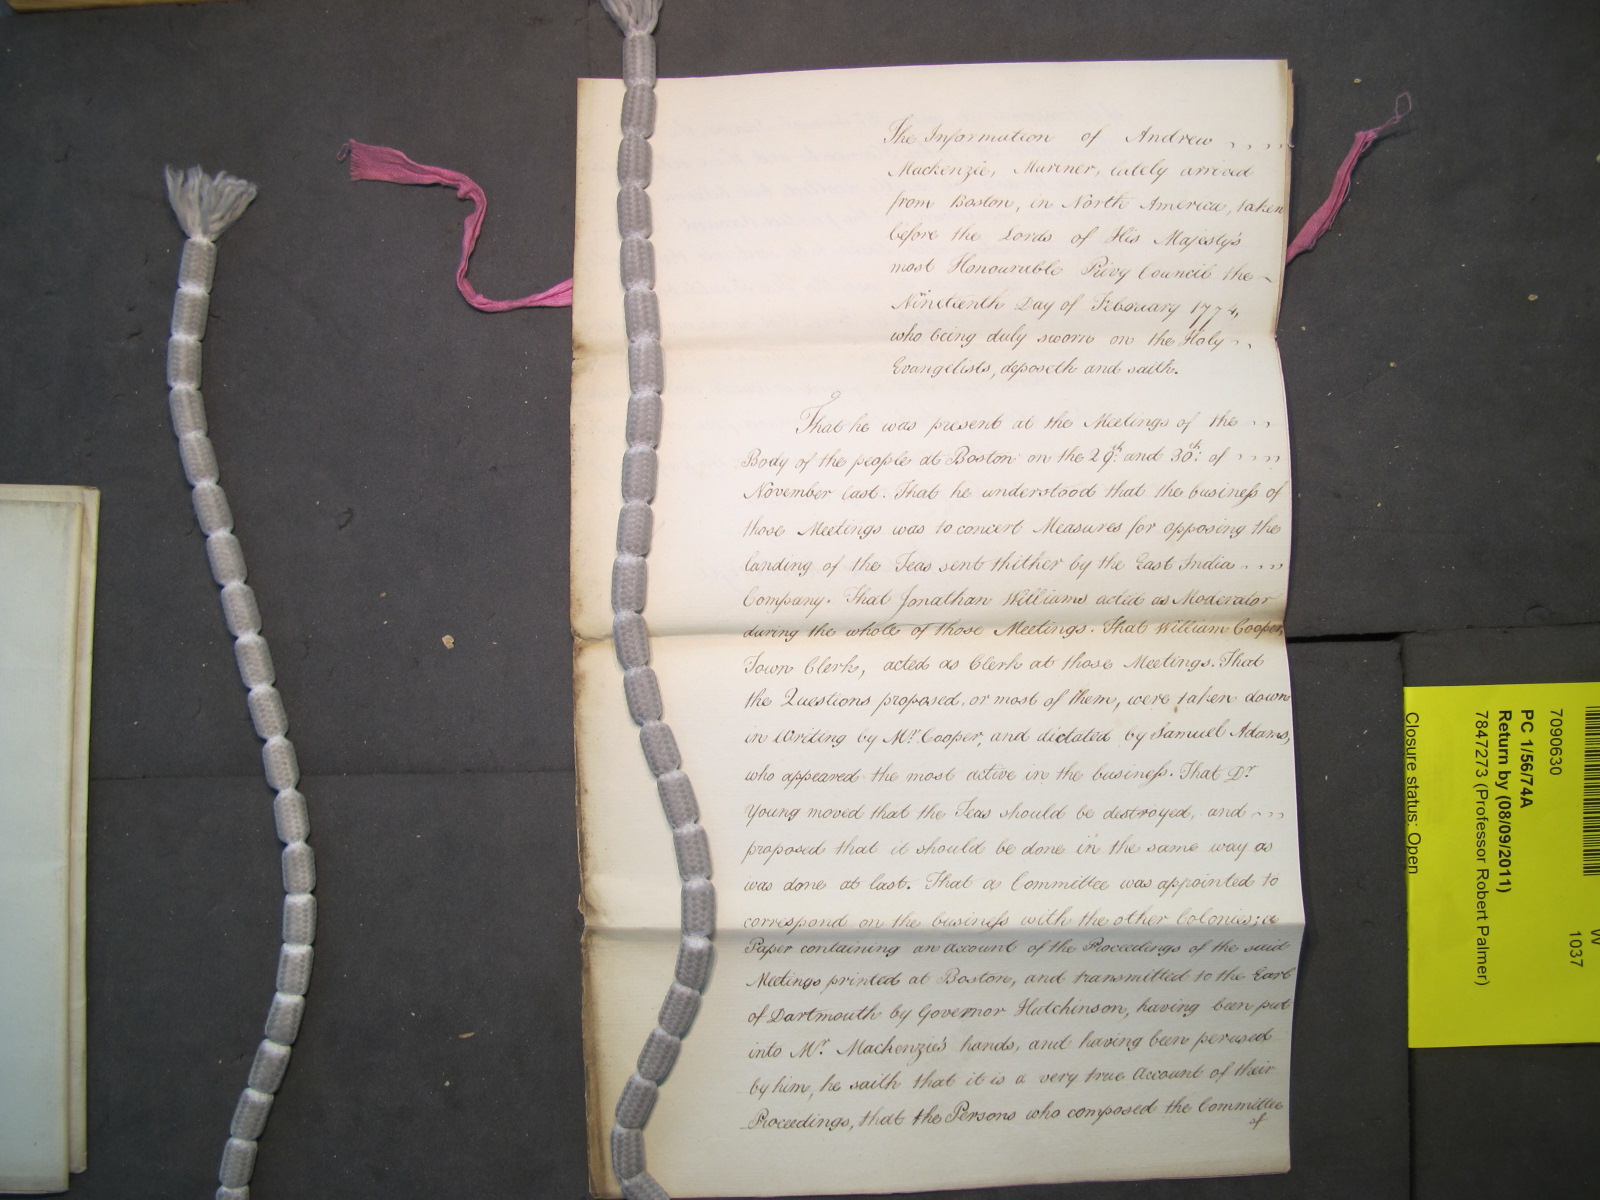 The Information of Andrew
Mackenzie, Mariner, lately arrived
from Boston, in North America, taken
before the Lords of His Majesty's
most Honourable Privy Council the
Nineteenth Day of February 1774,
who being duly sworn on the Holy
Evangelists, deposeth and saith.
That he was present at the Meetings of the
Body of the people at Boston on the 29th. and 30th. of
November last. That he understood that the business of
those Meetings was to concert Measures for opposing the
landing of the Teas sent thither by the East India
Company. That Jonathan Williams acted as Moderator
during the whole of those Meetings. That William Cooper,
Town Clerk, acted as Clerk at those Meetings. That
the Questions proposed, or most of them, were taken down
in Writing by Mr. Cooper, and dictated by Samuel Adams,
who appeared the most active in the business. That Dr.
Young moved that the Teas should be destroyed, and
proposed that it should be done in the same way as
was done at last. That a Committee was appointed to
correspond on the business with the other Colonies; a
Paper containing an Account of the Proceedings of the said
Meetings printed at Boston, and transmitted to the Earl
of Dartmouth by Governor Hutchinson, having been put
into Mr. Mackenzie's hands, and having been perused
by him, he saith that it is a very true Account of their
Proceedings, that the Persons who composed the Committee
of
W
1037
7090630
PC 1/56/74A
Return by (08/09/2011)
7847273 (Professor Robert Palmer)
Closure status: Open